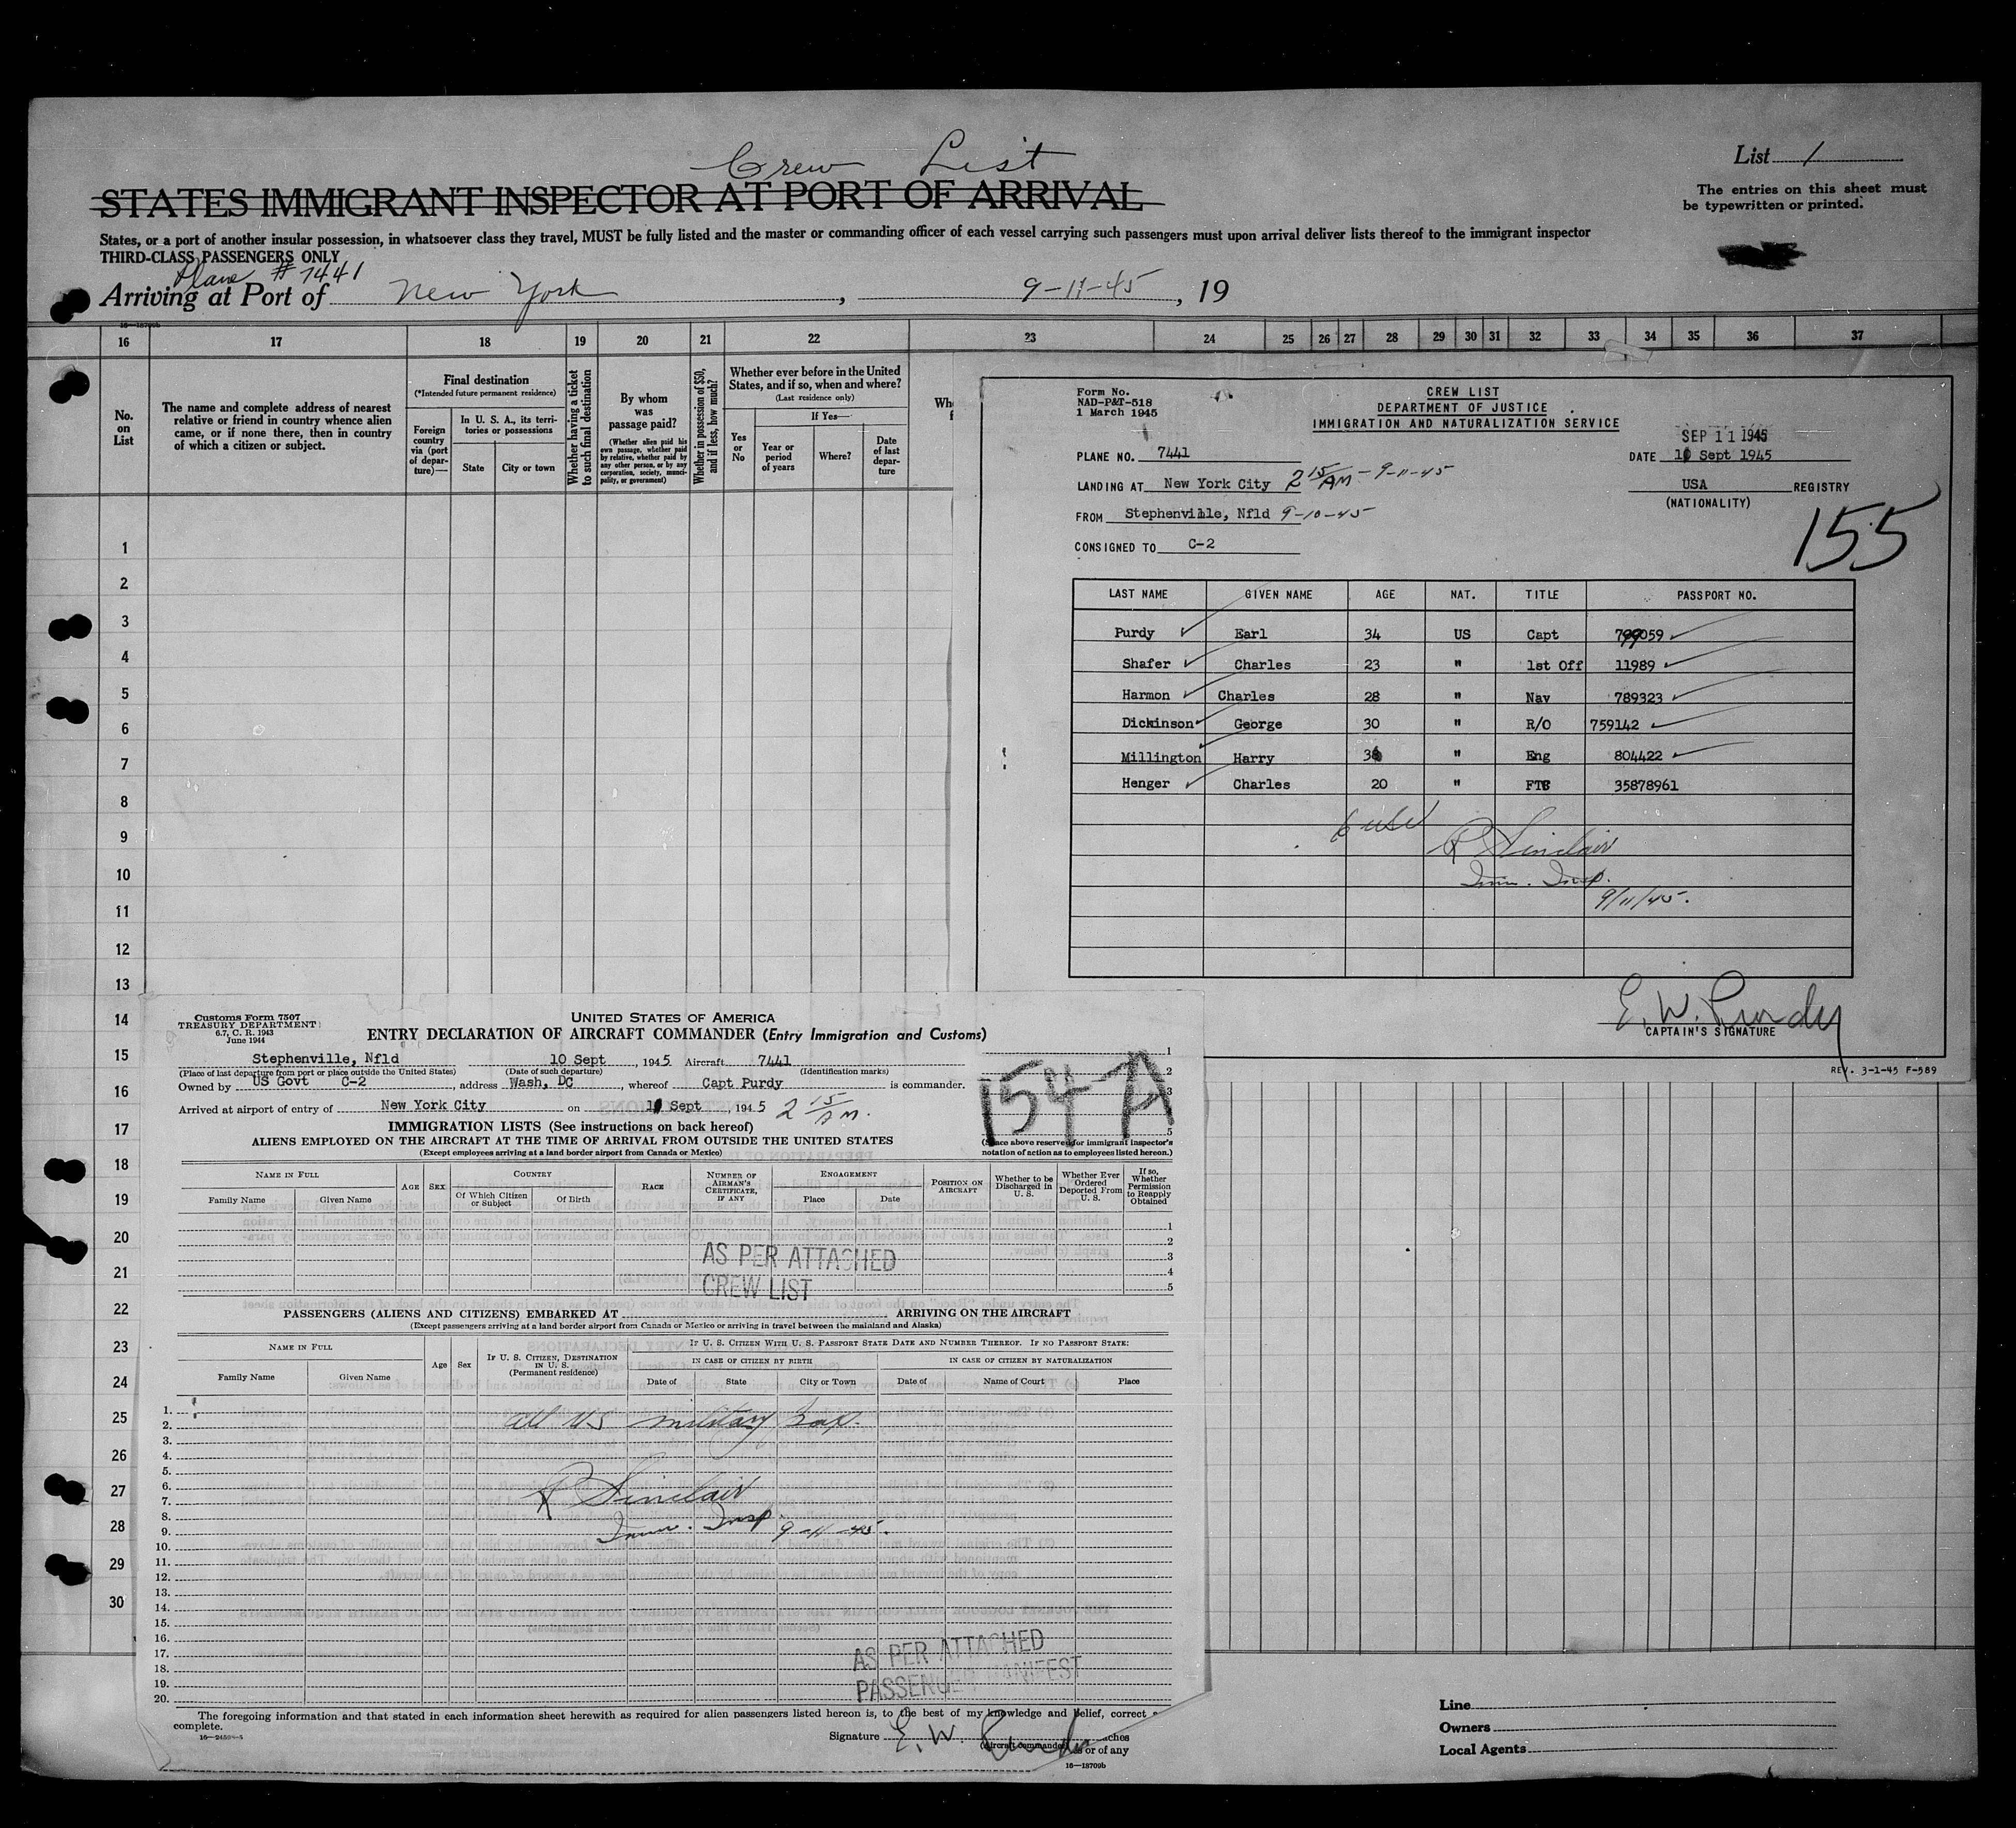 Crew List
STATES IMMIGRANT INSPECTOR AT PORT OF ARRIVAL
List 1
The entries on this sheet must
be typewritten or printed.
States, or a port of another insular possession, in whatsoever class they travel, MUST be fully listed and the master or commanding officer of each vessel carrying such passengers must upon arrival deliver lists thereof to the immigrant inspector
THIRD-CLASS PASSENGERS ONLY
Plane # 7441
Arriving at Port of New York, 9-11-45, 19
16 17 18 19 20 21 22 23 24 25 26 27 28 29 30 31 32 33 34 35 36 37
No.
on
List
The name and complete address of nearest
relative or friend in country whence alien
came, or if none there, then in country
of which a citizen or subject.
Final destination
(*Intended future permanent residence)
Foreign
country
via (port
of depar-
ture)—
In U. S. A., its terri-
tories or possessions
State
City or town
Whether having a ticket
to such final destination
By whom
was
passage paid?
(Whether alien paid his
own passage, whether paid
by relative, whether paid by
any other person, or by any
corporation, society, munici-
pality, or government)
Whether in possession of $50,
and if less, how much?
Whether ever before in the United
States, and if so, when and where?
(Last residence only)
Yes
or
No
If Yes—
Year or
period
of years
Where?
Date
of last
depar-
ture
Wh
1
2
3
4
5
6
7
8
9
10
11
12
13
14
15
16
17
18
19
20
21
22
23
24
25
26
27
28
29
30
Form No.
NAD-P&T-518
1 March 1945
CREW LIST
DEPARTMENT OF JUSTICE
IMMIGRATION AND NATURALIZATION SERVICE
SEP 11 1945
PLANE NO. 7441
DATE Sept 1945
LANDING AT New York City 2 15 AM - 9-11-45
USA REGISTRY
(NATIONALITY)
FROM Stephenville, Nfld 9-10-45
155
CONSIGNED TO C-2
LAST NAME GIVEN NAME AGE NAT. TITLE PASSPORT NO.
Purdy Earl 34 US Capt 799059
Shafer Charles 23 " 1st Off 11989
Harmon Charles 28 " Nav 789323
Dickinson George 30 " R/O 759142
Millington Harry " Eng 804422
Henger Charles 20 " 35878961
R Sinclair
Imm. Insp.
9/11/45.
E. W. Purdy
CAPTAIN'S SIGNATURE
REV. 3-1-45 F-589
Customs Form 7507
TREASURY DEPARTMENT
6.7, C. R. 1943
June 1944
UNITED STATES OF AMERICA
ENTRY DECLARATION OF AIRCRAFT COMMANDER (Entry Immigration and Customs)
Stephenville, Nfld 10 Sept, 1945 Aircraft 7441
(Place of last departure from port or place outside the United States) (Date of such departure) (Identification marks)
Owned by US Govt C-2, address Wash, DC, whereof Capt Purdy is commander.
Arrived at airport of entry of New York City on Sept, 1945 2 15 AM.
154 A
1
2
3
5
(Space above reserved for immigrant inspector's
notation of action as to employees listed hereon.)
IMMIGRATION LISTS (See instructions on back hereof)
ALIENS EMPLOYED ON THE AIRCRAFT AT THE TIME OF ARRIVAL FROM OUTSIDE THE UNITED STATES
(Except employees arriving at a land border airport from Canada or Mexico)
NAME IN FULL
Family Name
Given Name
AGE
SEX
COUNTRY
Of Which Citizen
or Subject
Of Birth
RACE
NUMBER OF
AIRMAN'S
CERTIFICATE,
IF ANY
ENGAGEMENT
Place
Date
POSITION ON
AIRCRAFT
Whether to be
Discharged in
U. S.
Whether Ever
Ordered
Deported From
U. S.
If so,
Whether
Permission
to Reapply
Obtained
1
2
3
4
5
AS PER ATTACHED
CREW LIST
PASSENGERS (ALIENS AND CITIZENS) EMBARKED AT ARRIVING ON THE AIRCRAFT
(Except passengers arriving at a land border airport from Canada or Mexico or arriving in travel between the mainland and Alaska)
NAME IN FULL
Family Name
Given Name
Age
Sex
IF U. S. CITIZEN, DESTINATION
IN U. S.
(Permanent residence)
IF U. S. CITIZEN WITH U. S. PASSPORT STATE DATE AND NUMBER THEREOF. IF NO PASSPORT STATE:
IN CASE OF CITIZEN BY BIRTH
IN CASE OF CITIZEN BY NATURALIZATION
Date of
State
City or Town
Date of
Name of Court
Place
1.
2.
3.
4.
5.
6.
7.
8.
9.
10.
11.
12.
13.
14.
15.
16.
17.
18.
19.
20.
All US military
R Sinclair
Imm. Insp.
9-11-45.
AS PER ATTACHED
PASSENGER MANIFEST
The foregoing information and that stated in each information sheet herewith as required for alien passengers listed hereon is, to the best of my knowledge and belief, correct
complete.
Signature E. W. Purdy
(Aircraft commander)
aches
s or of any
16—18709b
Line
Owners
Local Agents